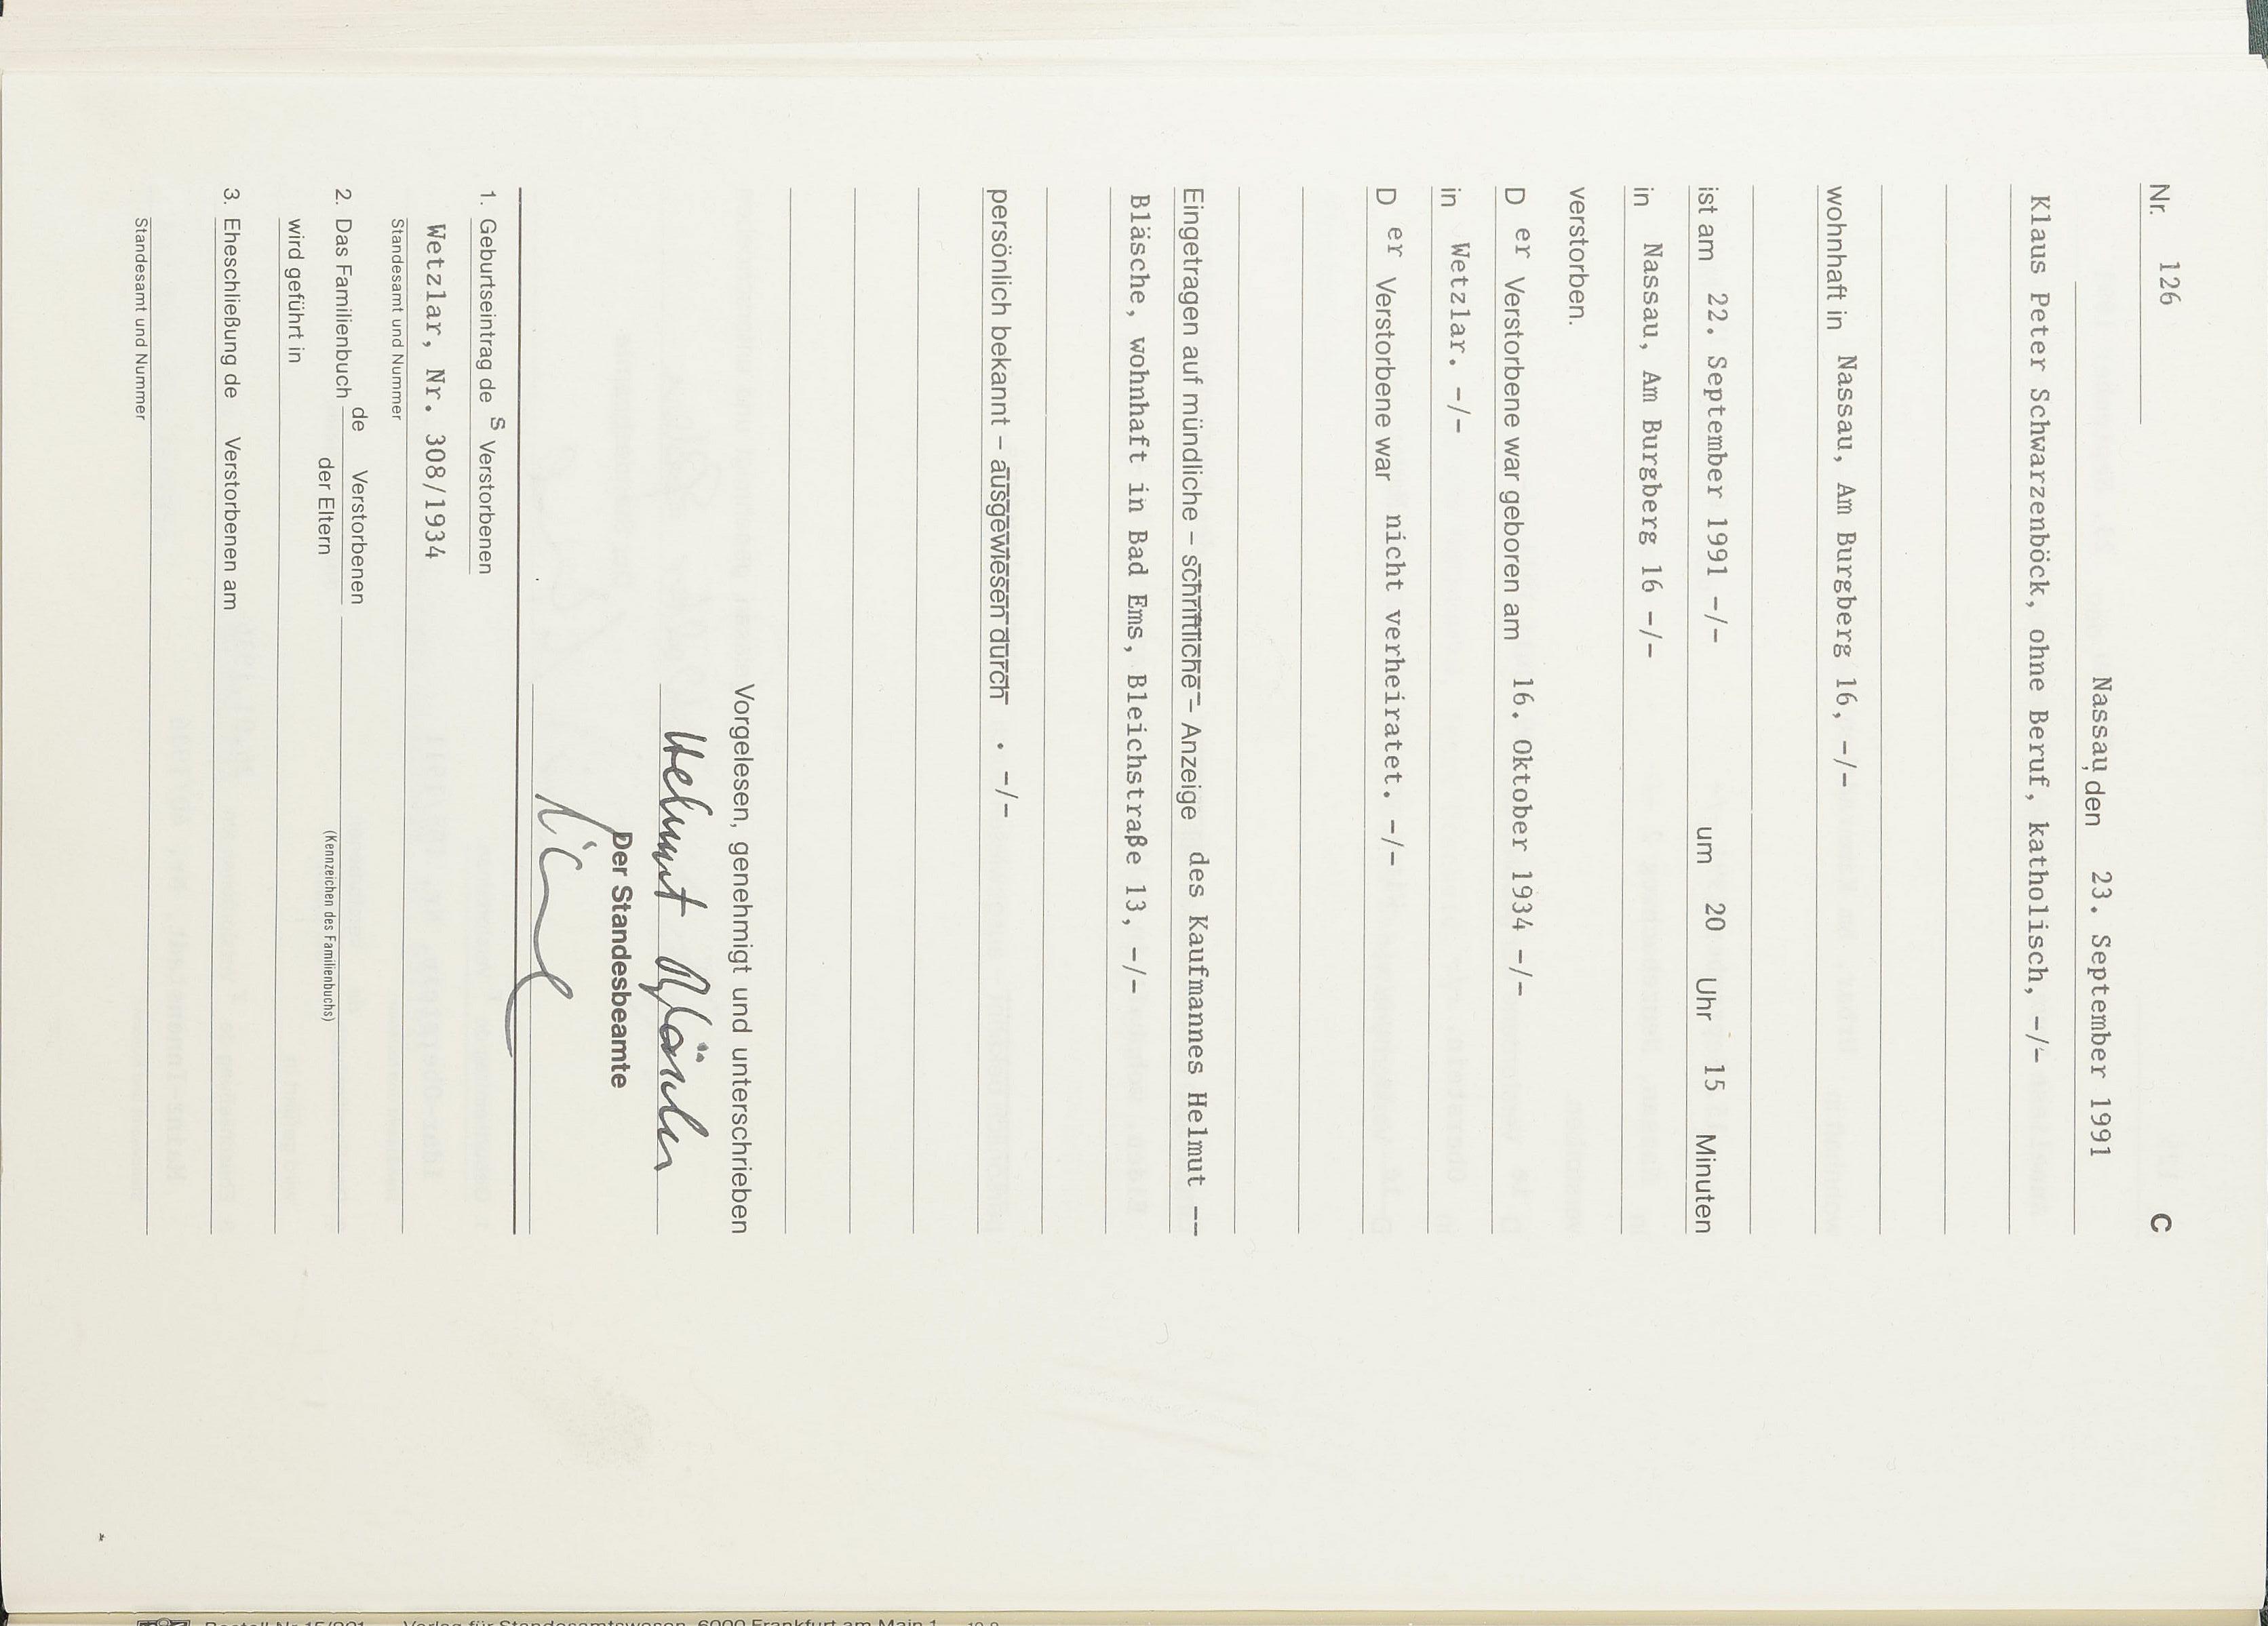 Nr. 126 C
Nassau, den 23. September 1991
Klaus Peter Schwarzenböck, ohne Beruf, katholisch, -/-
wohnhaft in Nassau, Am Burgberg 16, -/-
ist am 22. September 1991 -/- um 20 Uhr 15 Minuten
in Nassau, Am Burgberg 16 -/-
verstorben.
D er Verstorbene war geboren am 16. Oktober 1934 -/-
in Wetzlar. -/-
D er Verstorbene war nicht verheiratet. -/-
Eingetragen auf mündliche – schriftliche – Anzeige des Kaufmannes Helmut --
Bläsche, wohnhaft in Bad Ems, Bleichstraße 13, -/-
persönlich bekannt – ausgewiesen durch . -/-
Vorgelesen, genehmigt und unterschrieben
Helmut Bläsche
Der Standesbeamte
1. Geburtseintrag de s Verstorbenen
Wetzlar, Nr. 308/1934
Standesamt und Nummer
2. Das Familienbuch de Verstorbenen
der Eltern
wird geführt in (Kennzeichen des Familienbuchs)
3. Eheschließung de Verstorbenen am
Standesamt und Nummer
Bestell-Nr. 15/001 Verlag für Standesamtswesen, 6000 Frankfurt am Main 1